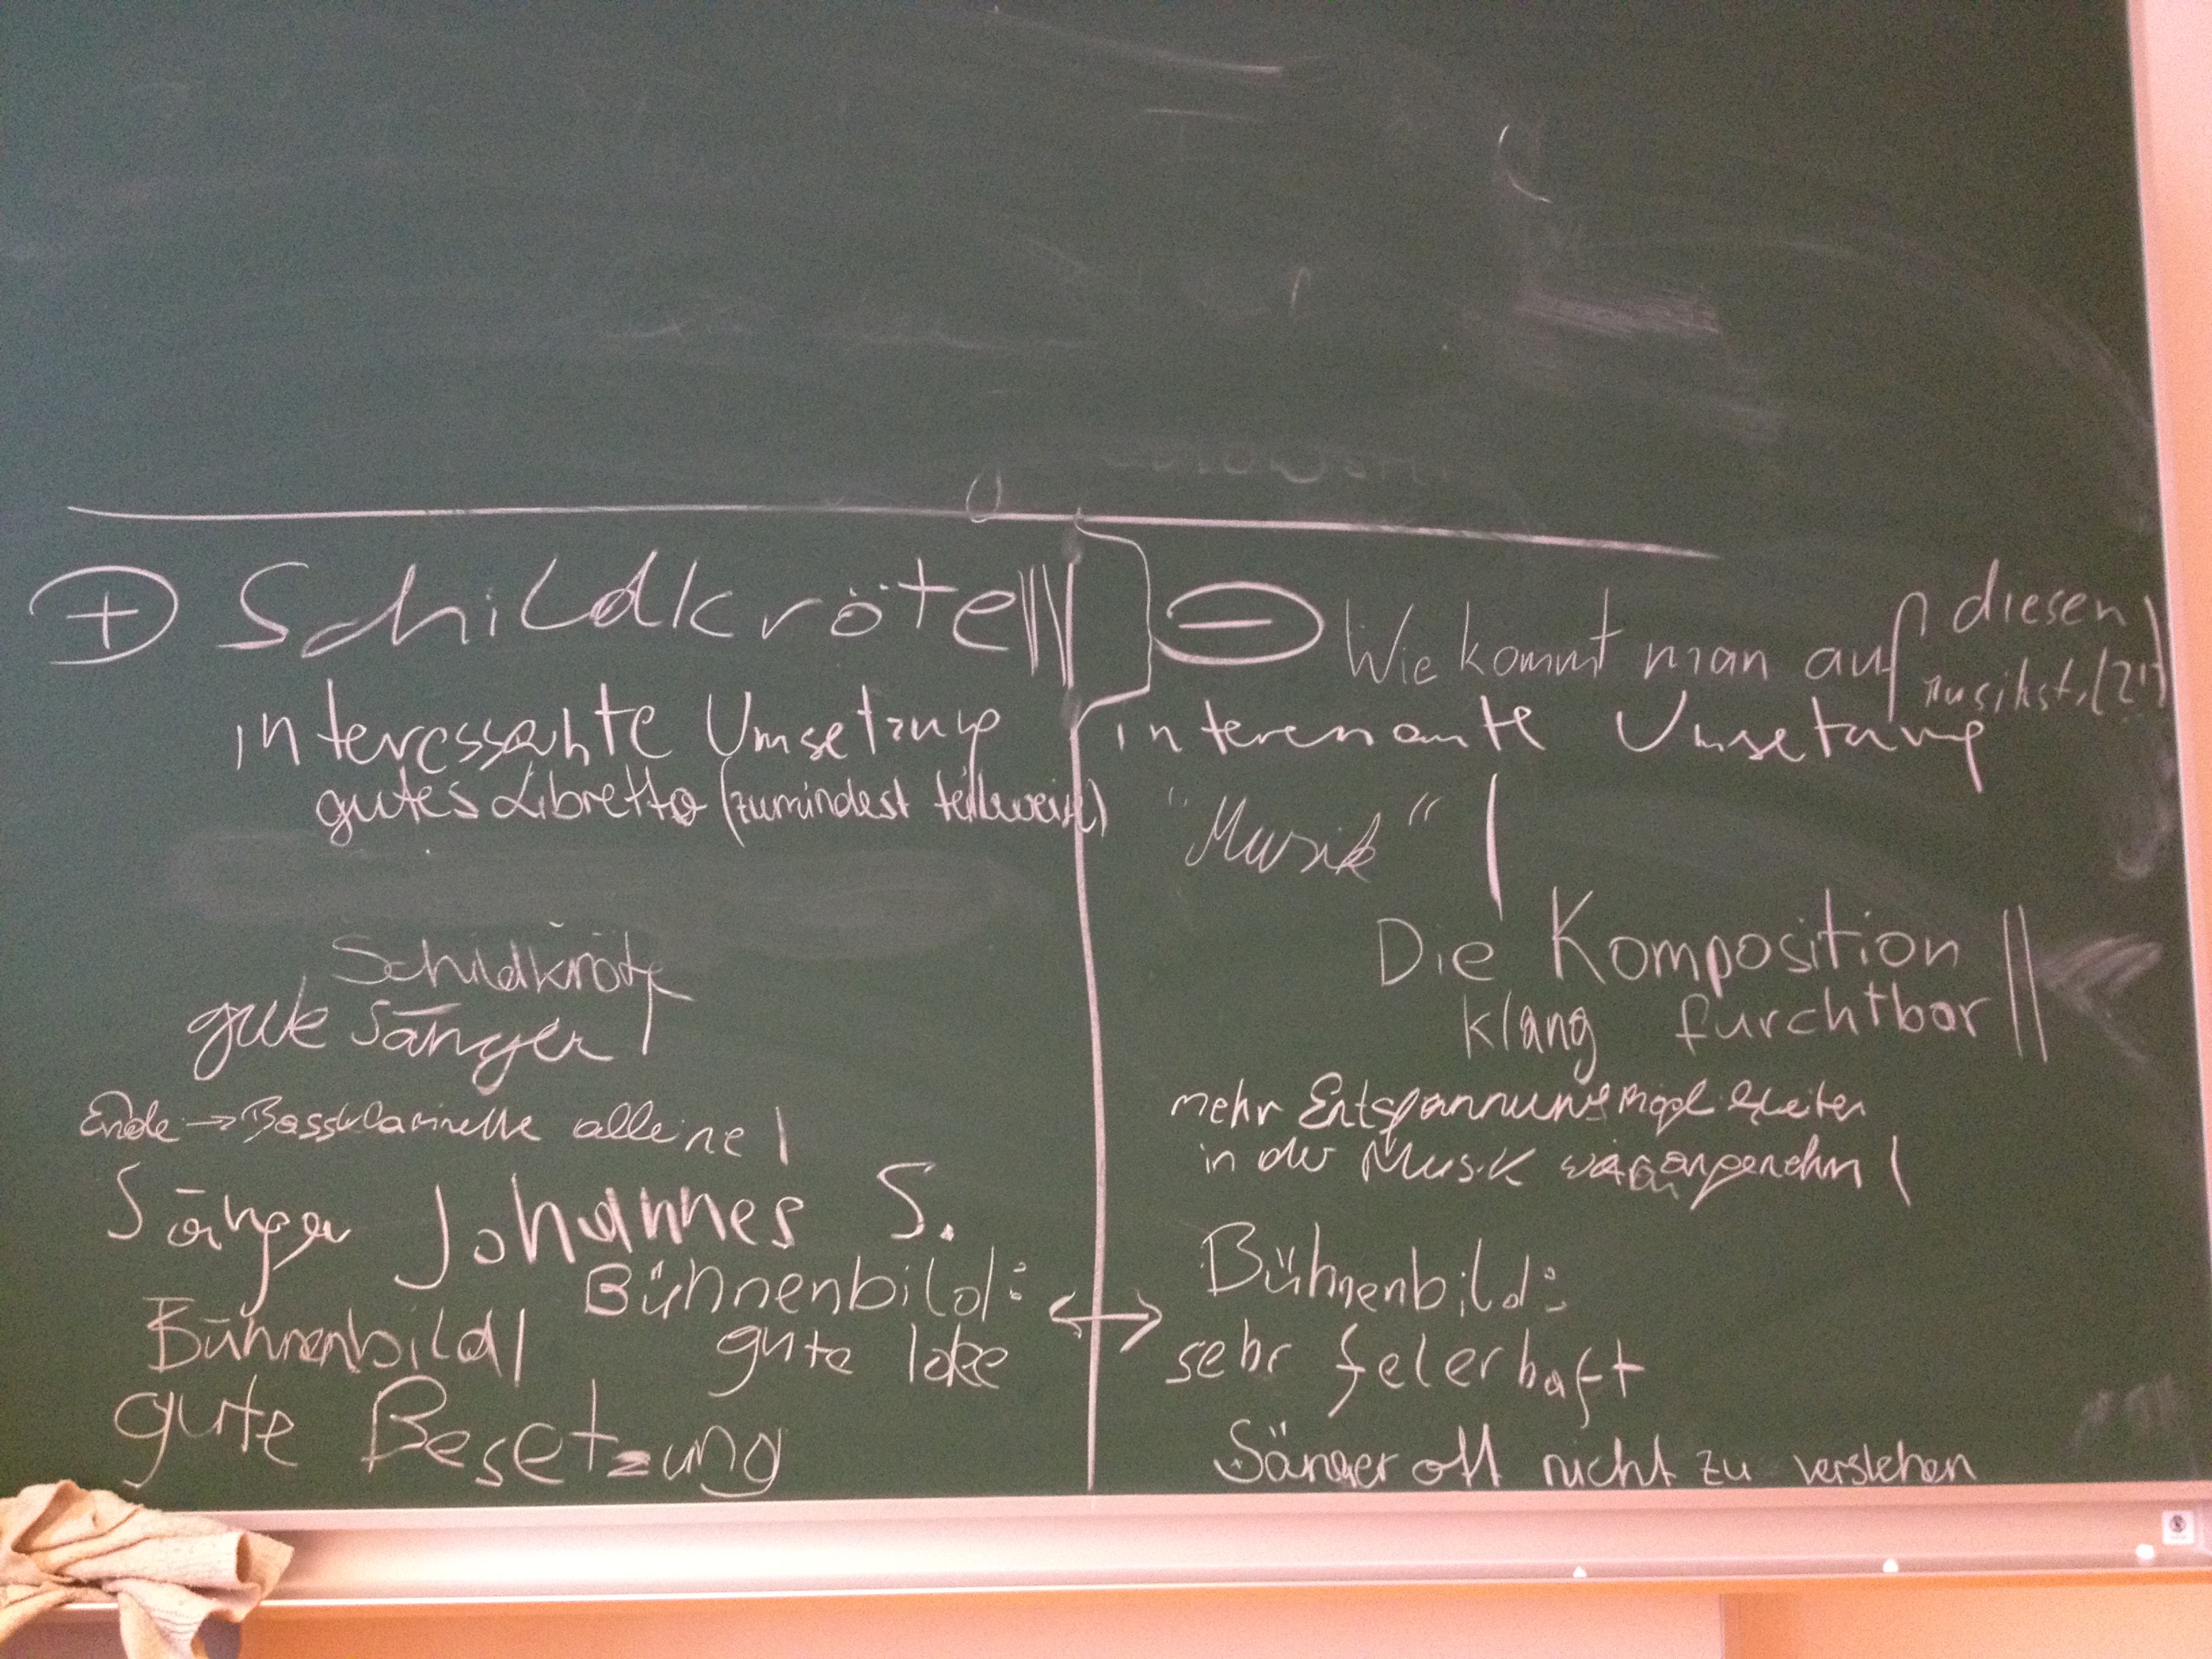 + Schildkröte
interessante Umsetzung
gutes Libretto (zumindest teilweise)
Schildkröte
gute Sänger |
Ende → Bassklarinette alleine |
Sänger Johannes S.
Bühnenbild:
gute Idee
Bühnenbild |
gute Besetzung
- Wie kommt man auf diesen
Musikst.(2!)
interessante Umsetzung
"Musik" |
Die Komposition
klang furchtbar ||
mehr Entspannungsmöglichkeiten
in der Musik angenehm |
Bühnenbild:
sehr felerhaft
Sänger oft nicht zu verstehen